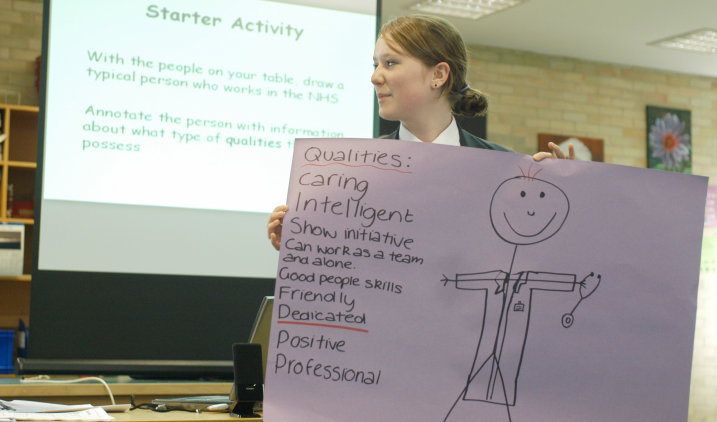 Starter Activity
With the people on your table, draw a
typical person who works in the NHS
Annotate the person with information
about what type of qualities
possess
Qualities:
Caring
Intelligent
Show initiative
Can work as a team
and alone.
Good people skills
Friendly
Dedicated
Positive
Professional